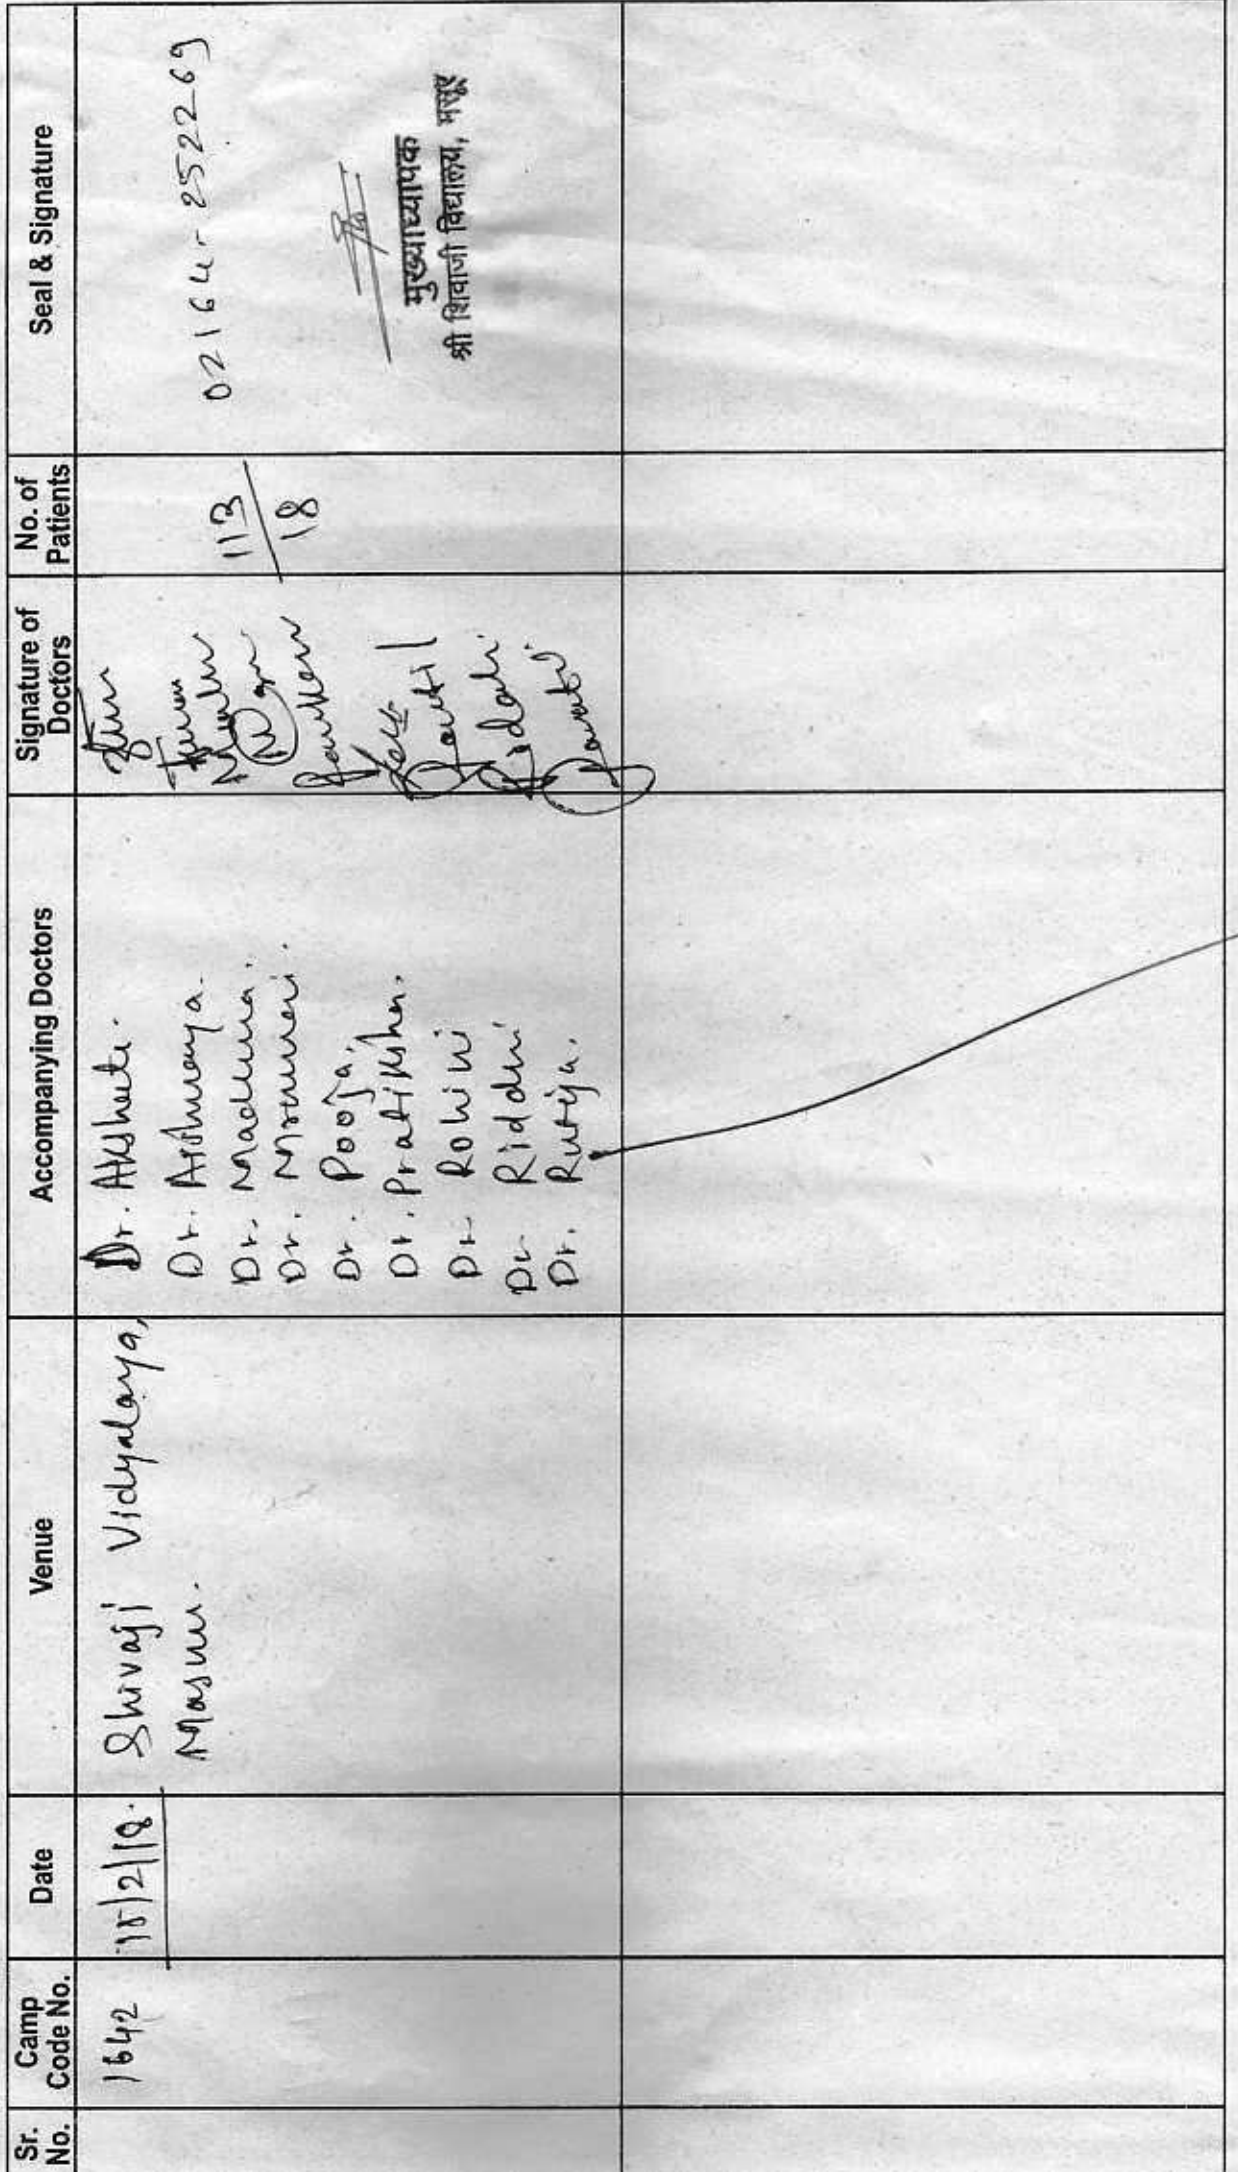 Sr. No.
Camp Code No.
Date
Venue
Accompanying Doctors
Signature of Doctors
No. of Patients
Seal & Signature
1642
15/2/18.
Shivaji Vidyalaya,
Masur.
Dr. Akshata.
Dr.
Dr. Madhura.
Dr.
Dr. Pooja.
Dr. Pratiksha.
Dr. Rohini
Dr. Riddhi
Dr. Rutuja.
113
18
02164-252269
मुख्याध्यापक
श्री शिवाजी विद्यालय, मसूर